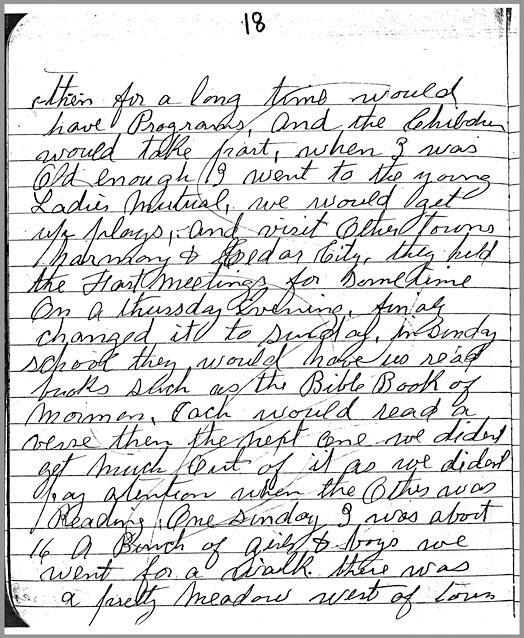 18
then for a long time would
have Programs, and the Children
would take part, when I was
Old enough I went to the young
Ladies Mutual, we would get
up plays, and visit Other Towns
harmony & Cedar City, they held
the Fast Meetings for sometime
On a thursday Evening, finaly
changed it to sunday, in sunday
school they would have us read
books such as the Bible Book of
Mormon, Each would read a
verse then the next One we didend
get Much Out of it as we didend
pay atention when the Others was
Reading. One sunday I was about
16 A Bunch of girls & boys we
went for a walk there was
a pretty Meadow west of town